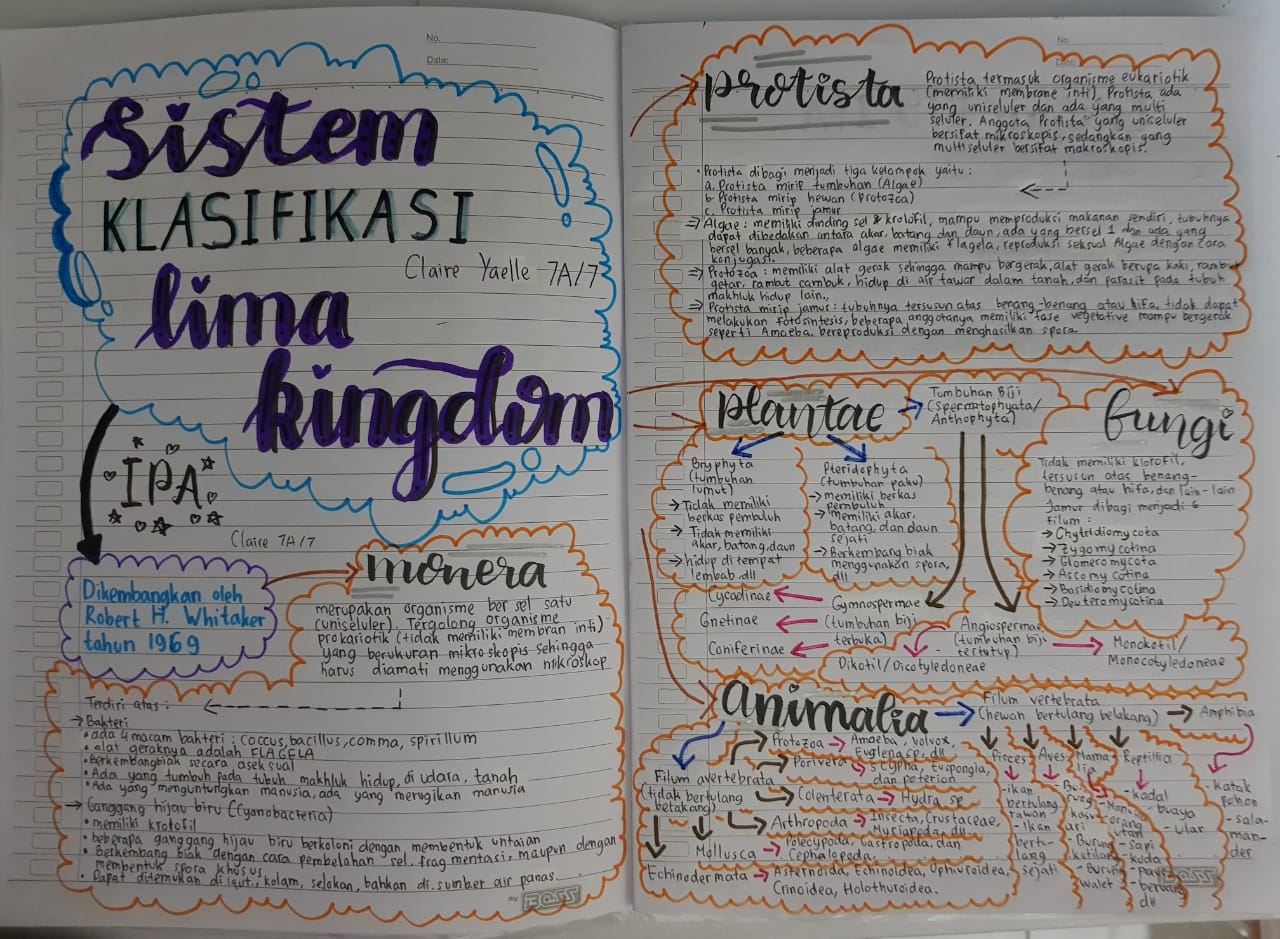 No.
Date:
Sistem
KLASIFIKASI
Claire Yaelle 7A/7
lima
kingdom
IPA
Claire 7A/7
Dikembangkan oleh
Robert H. Whitaker
tahun 1969
monera
merupakan organisme ber sel satu
(uniseluler). Tergolong organisme
prokariotik (tidak memiliki membran inti)
yang berukuran mikroskopis sehingga
harus diamati menggunakan mikroskop
Terdiri atas :
→ Bakteri
• ada 4 macam bakteri : coccus, bacillus, comma, spirillum
• alat geraknya adalah FLAGELA
• Berkembangbiak secara aseksual
• Ada yang tumbuh pada tubuh makhluk hidup, di udara, tanah
• Ada yang menguntungkan manusia, ada yang merugikan manusia
→ Ganggang hijau biru (Cyanobacteria)
• memiliki krolofil
• beberapa ganggang hijau biru berkoloni dengan membentuk untaian
• Berkembang biak dengan cara pembelahan sel, fragmentasi, maupun dengan
membentuk spora khusus
• Dapat ditemukan di laut, kolam, selokan, bahkan di sumber air panas.
BOSS
No
Date:
protista
Protista termasuk organisme eukariotik
(memiliki membrane inti). Protista ada
yang uniseluler dan ada yang multi
seluler. Anggota Protista yang uniseluler
bersifat mikroskopis, sedangkan yang
multiseluler bersifat makroskopis.
• Protista dibagi menjadi tiga kelompok yaitu :
a. Protista mirip tumbuhan (Algae)
b. Protista mirip hewan (Protozoa)
c. Protista mirip jamur
⇒ Algae : memiliki dinding sel & krolofil, mampu memproduksi makanan sendiri, tubuhnya
dapat dibedakan antara akar, batang dan daun, ada yang bersel 1 dan ada yang
bersel banyak, beberapa algae memiliki flagela, reproduksi seksual Algae dengan cara
konjugasi.
⇒ Protozoa : memiliki alat gerak sehingga mampu bergerak, alat gerak berupa kaki, rambut
getar, rambut cambuk, hidup di air tawar dalam tanah, dan parasit pada tubuh
makhluk hidup lain.
⇒ Protista mirip jamur : tubuhnya tersusun atas benang-benang atau hifa, tidak dapat
melakukan fotosintesis, beberapa anggotanya memiliki fase vegetative mampu bergerak
seperti Amoeba, bereproduksi dengan menghasilkan spora.
plantae
Tumbuhan Biji
(Spermatophyata/
Anthophyta)
Bryphyta
(tumbuhan
lumut)
→ Tidak memiliki
berkas pembuluh
→ Tidak memiliki
akar, batang, daun
→ hidup di tempat
lembab, dll
Pteridophyta
(tumbuhan paku)
→ memiliki berkas
pembuluh
→ memiliki akar,
batang, dan daun
sejati
→ Berkembang biak
menggunakan spora,
dll
Gymnospermae
(tumbuhan biji
terbuka)
Cycadinae
Gnetinae
Coniferinae
Angiospermae
(tumbuhan biji
tertutup)
Dikotil/Dicotyledoneae
Monokotil/
Monocotyledoneae
fungi
Tidak memiliki klorofil,
tersusun atas benang-
benang atau hifa, dan lain-lain
Jamur dibagi menjadi 6
Filum :
→ Chytridiomycota
→ Zygomycotina
→ Glomeromycota
→ Ascomycotina
→ Basidiomycotina
→ Deuteromycotina
animalia
Filum vertebrata
(hewan bertulang belakang) → Amphibia
Pisces
-ikan
bertulang
rawan
-Ikan
bertu-
lang
sejati
Aves
kasu
ari
-Burung
kutilang
-Burung
walet
Mama
lia
orang
utan
-sapi
-kuda
dll
Reptilia
-kadal
-buaya
-ular
-katak
pohon
-sala-
man-
der
Filum avertebrata
(tidak bertulang
belakang)
Protozoa → Amoeba, volvox,
Euglenaceae, dll
Porivera → Scypha, Euspongia,
dan poterion
Colenterata → Hydra sp
Arthropoda → Insecta, Crustaceae,
Myriapoda, dll
Mollusca → Pelecypoda, Gastropoda, dan
Cephalopoda.
Echinodermata → Asternoida, Echinoidea, Ophiuroidea,
Crinoidea, Holothuroidea.
BOSS